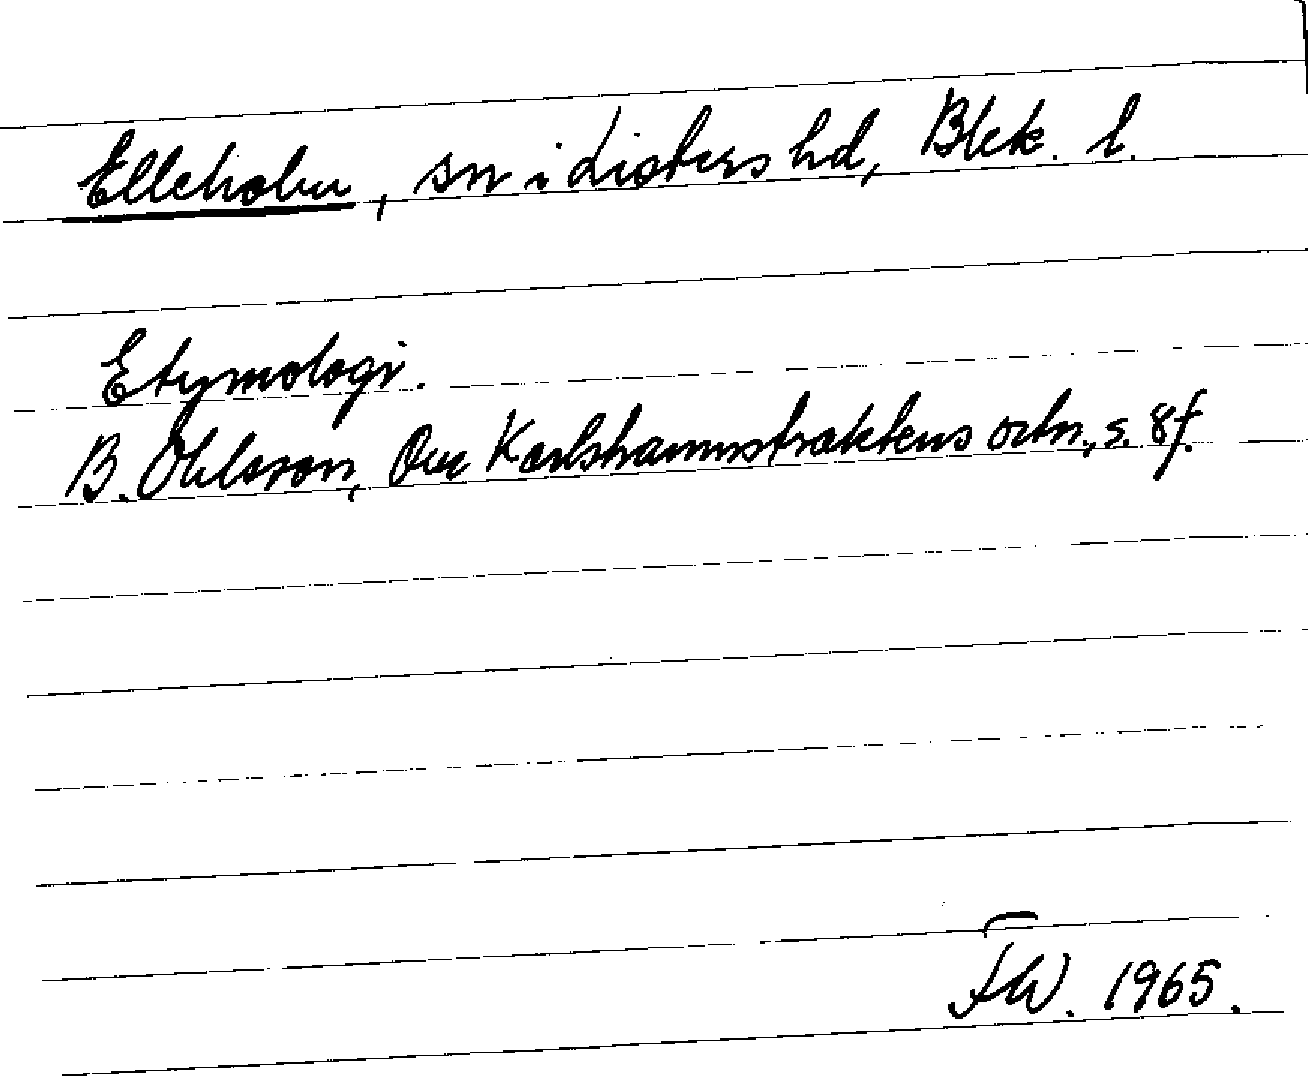 Elleholm, sn i Listers hd, Blek. l.
Etymologi.
B. Ohlsson, Om Karlshamnstraktens ortn., s. 8f.
FW. 1965.